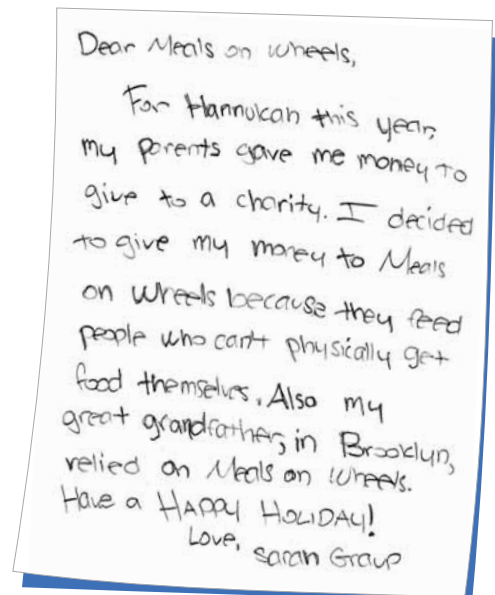 Dear Meals on Wheels,
For Hannukah this year,
my parents gave me money to
give to a charity. I decided
to give my money to Meals
on Wheels because they feed
people who can't physically get
food themselves. Also my
great grandfather, in Brooklyn,
relied on Meals on Wheels.
Have a HAPPY HOLIDAY!
Love,
Sarah Group